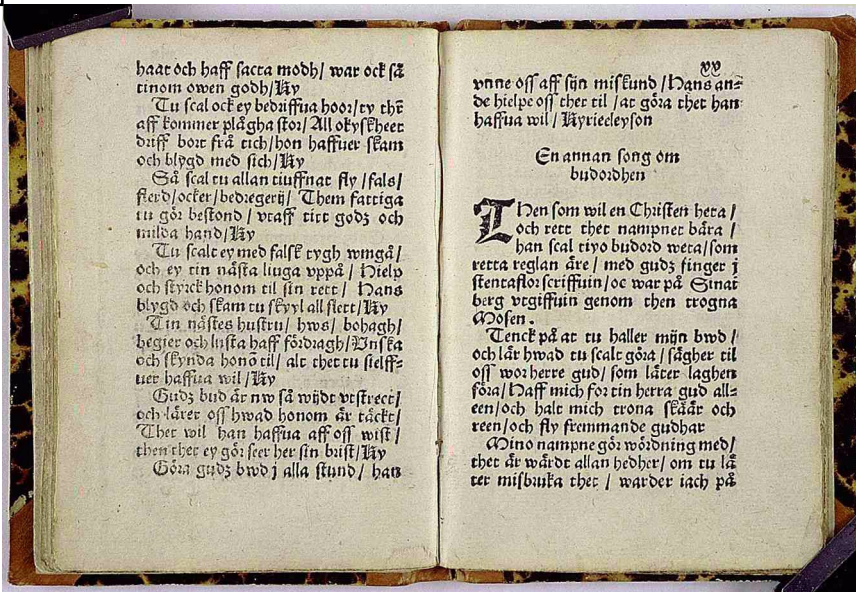 haat och haff sacta modh/ war ock så
tinom owen godh/Ky
Tu scal ock ey bedriffua hoor/ty thz̃
aff kommer plågha stor/ All okyskheet
driff bort frå tich/hon haffuer skam
och blygd med sich/Ky
Så scal tu allan tiuffnat fly /fals/
fierd/ocker/bedregerij/ Them fattiga
tu gör bestond / vtaff titt godz och
milda hand/Ky
Tu scalt ey med falsk tygh wmgå/
och ey tin nästa liuga vppå / Hielp
och styrck honom til sin rett / Hans
blygd och skam tu skyyl all slett/Ky
Tin nästes hustru/ hws/ bohagh/
begier och lusta haff fördragh/Vnska
och skynda honō til/ alt thet tu sielff-
uer haffua wil /Ky
Gudz bud är nw så wijdt vtstrect/
och lärer oss hwad honom är täckt/
Thet wil han haffua aff oss wist /
then thet ey gör seer her sin brist/Ky
Göra gudz bwd j alla stund/ han
xv
vnne oss aff sijn miskund /Hans an-
de hielpe oss ther til /at göra thet han
haffua wil / Kyrieeleyson
En annan song om
budordhen
THen som wil en Christen heta /
och rett thet nampnet bära /
han scal tiyo budord weta/som
retta reglan äre / med gudz finger j
stentaflor scriffuin/oc war på Sinai
berg vtgiffuin genom then trogna
Mosen.
Tenck på at tu haller mijn bwd /
och lär hwad tu scalt göra / sägher til
oss wor herre gud/ som läter laghen
föra/Haff mich for tin herra gud all-
een/och halt mich trona skäär och
reen/och fly fremmande gudhar
Mino nampne gör wördning med/
thet är wärdt allan hedher/ om tu lä
ter misbruka thet / warder iach på